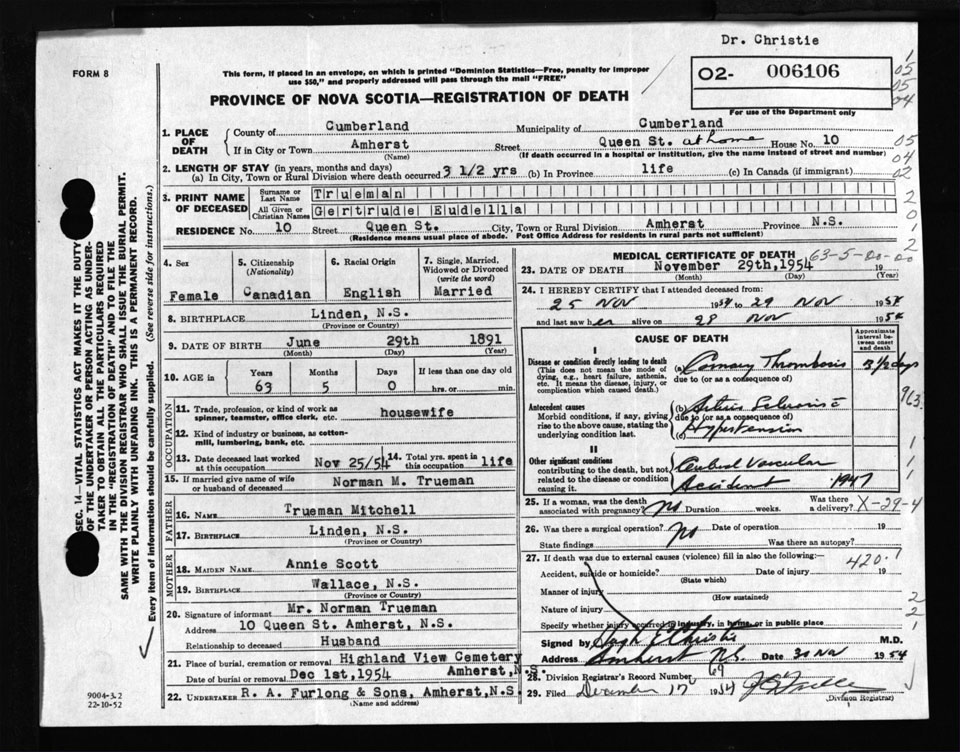 Dr. Christie
FORM 8
This form, if placed in an envelope, on which is printed "Dominion Statistics—Free, penalty for improper
use $50," and properly addressed will pass through the mail "FREE"
02- 006106
For use of the Department only
PROVINCE OF NOVA SCOTIA—REGISTRATION OF DEATH
1
05
05
04
05
04
02
2
0
1
2
1. PLACE OF DEATH
County of Cumberland Municipality of Cumberland
If in City or Town Amherst Street Queen St. at home House No. 10
(Name) (If death occurred in a hospital or institution, give the name instead of street and number)
2. LENGTH OF STAY (in years, months and days)
(a) In City, Town or Rural Division where death occurred 3 1/2 yrs (b) In Province life (c) In Canada (if immigrant)
3. PRINT NAME OF DECEASED
Surname or Last Name Trueman
All Given or Christian Names Gertrude Eudella
RESIDENCE No. 10 Street Queen St. City, Town or Rural Division Amherst Province N.S.
(Residence means usual place of abode. Post Office Address for residents in rural parts not sufficient)
4. Sex
Female
5. Citizenship
(Nationality)
Canadian
6. Racial Origin
English
7. Single, Married,
Widowed or Divorced
(write the word)
Married
8. BIRTHPLACE Linden, N.S.
(Province or Country)
9. DATE OF BIRTH June 29th 1891
(Month) (Day) (Year)
10. AGE in Years Months Days If less than one day old
63 5 0 hrs. or min.
OCCUPATION
11. Trade, profession, or kind of work as
spinner, teamster, office clerk, etc. housewife
12. Kind of industry or business, as cotten-
mill, lumbering, bank, etc.
13. Date deceased last worked
at this occupation Nov 25/54
14. Total yrs. spent in
this occupation life
15. If married give name of wife
or husband of deceased Norman M. Trueman
FATHER
16. NAME Trueman Mitchell
17. BIRTHPLACE Linden, N.S.
(Province or Country)
MOTHER
18. MAIDEN NAME Annie Scott
19. BIRTHPLACE Wallace, N.S.
(Province or Country)
20. Signature of informant Mr. Norman Trueman
Address 10 Queen St. Amherst, N.S.
Relationship to deceased Husband
21. Place of burial, cremation or removal Highland View Cemetery
Date of burial or removal Dec 1st,1954 Amherst,N.S.
22. UNDERTAKER R. A. Furlong & Sons, Amherst,N.S.
(Name and address)
MEDICAL CERTIFICATE OF DEATH 63-5-00-00
23. DATE OF DEATH November 29th,1954 19
(Month) (Day) (Year)
24. I HEREBY CERTIFY that I attended deceased from:
25 Nov 1954 to 29 Nov 1954
and last saw her alive on 28 Nov 1954
CAUSE OF DEATH
Approximate
interval be-
tween onset
and death
I
Disease or condition directly leading to death
(This does not mean the mode of
dying, e.g., heart failure, asthenia,
etc. It means the disease, injury, or
complication which caused death.)
(a) Coronary Thrombosis 3 1/2 days
due to (or as a consequence of)
963
Antecedent causes
Morbid conditions, if any, giving
rise to the above cause, stating the
underlying condition last.
(b)
due to (or as a consequence of)
(c) Hypertension
II
Other significant conditions
contributing to the death, but not
related to the disease or condition
causing it.
Cerebral Vascular
Accident 1947
1
1
1
25. If a woman, was the death
associated with pregnancy? No Duration weeks. Was there
a delivery? X-29-4
26. Was there a surgical operation? No Date of operation 19
State findings Was there an autopsy?
27. If death was due to external causes (violence) fill in also the following:—
420.1
Accident, suicide or homicide? Date of injury 19
(State which)
Manner of injury
(How sustained)
Nature of injury
Specify whether injury occurred in industry, in home, or in public place
2
2
1
Signed by Christie M.D.
Address Amherst N.S. Date 30 Nov 1954
28. Division Registrar's Record Number 69
29. Filed December 17 1954
(Division Registrar)
SEC. 14—VITAL STATISTICS ACT MAKES IT THE DUTY
OF THE UNDERTAKER OR PERSON ACTING AS UNDER-
TAKER TO OBTAIN ALL THE PARTICULARS REQUIRED
IN THE "REGISTRATION OF DEATH" AND TO FILE THE
SAME WITH THE DIVISION REGISTRAR WHO SHALL ISSUE THE BURIAL PERMIT.
WRITE PLAINLY WITH UNFADING INK. THIS IS A PERMANENT RECORD.
Every item of information should be carefully supplied. (See reverse side for instructions.)
9004-3.2
22-10-52